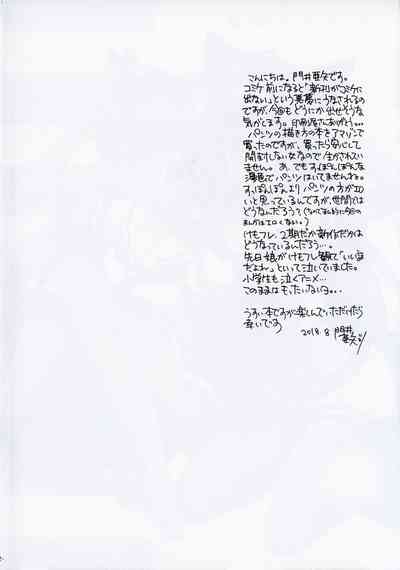 こんにちは。門井亜矢です。
コミケ前になると「新刊がコミケに
出ない」という悪夢にうなされるの
ですが、今回もどうにか出せそうな
気がします。印刷屋さんありがとう...
パンツの描き方の本をアマゾンで
買ったのですが、買ったら安心して
開きもしない女なので生かされてい
ません。あ、でもすっぽんぽんな
漫画でパンツはいてませんね。
すっぽんぽんよりパンツの方がエロ
いと思っているんですが、世間では
どうなんだろう?(なのでまんがに今回の
まんがはエロくない!)
けもフレ、2期だか新作だかは
どうなっているんだろう...。
先日娘がけもフレ観て「いい話
だよね」といって泣いていました。
小学生も泣くアニメ...
このままはもったいないョ...
うすい本ですが楽しんでいただけたら
幸いです
2018.8 門井亜矢